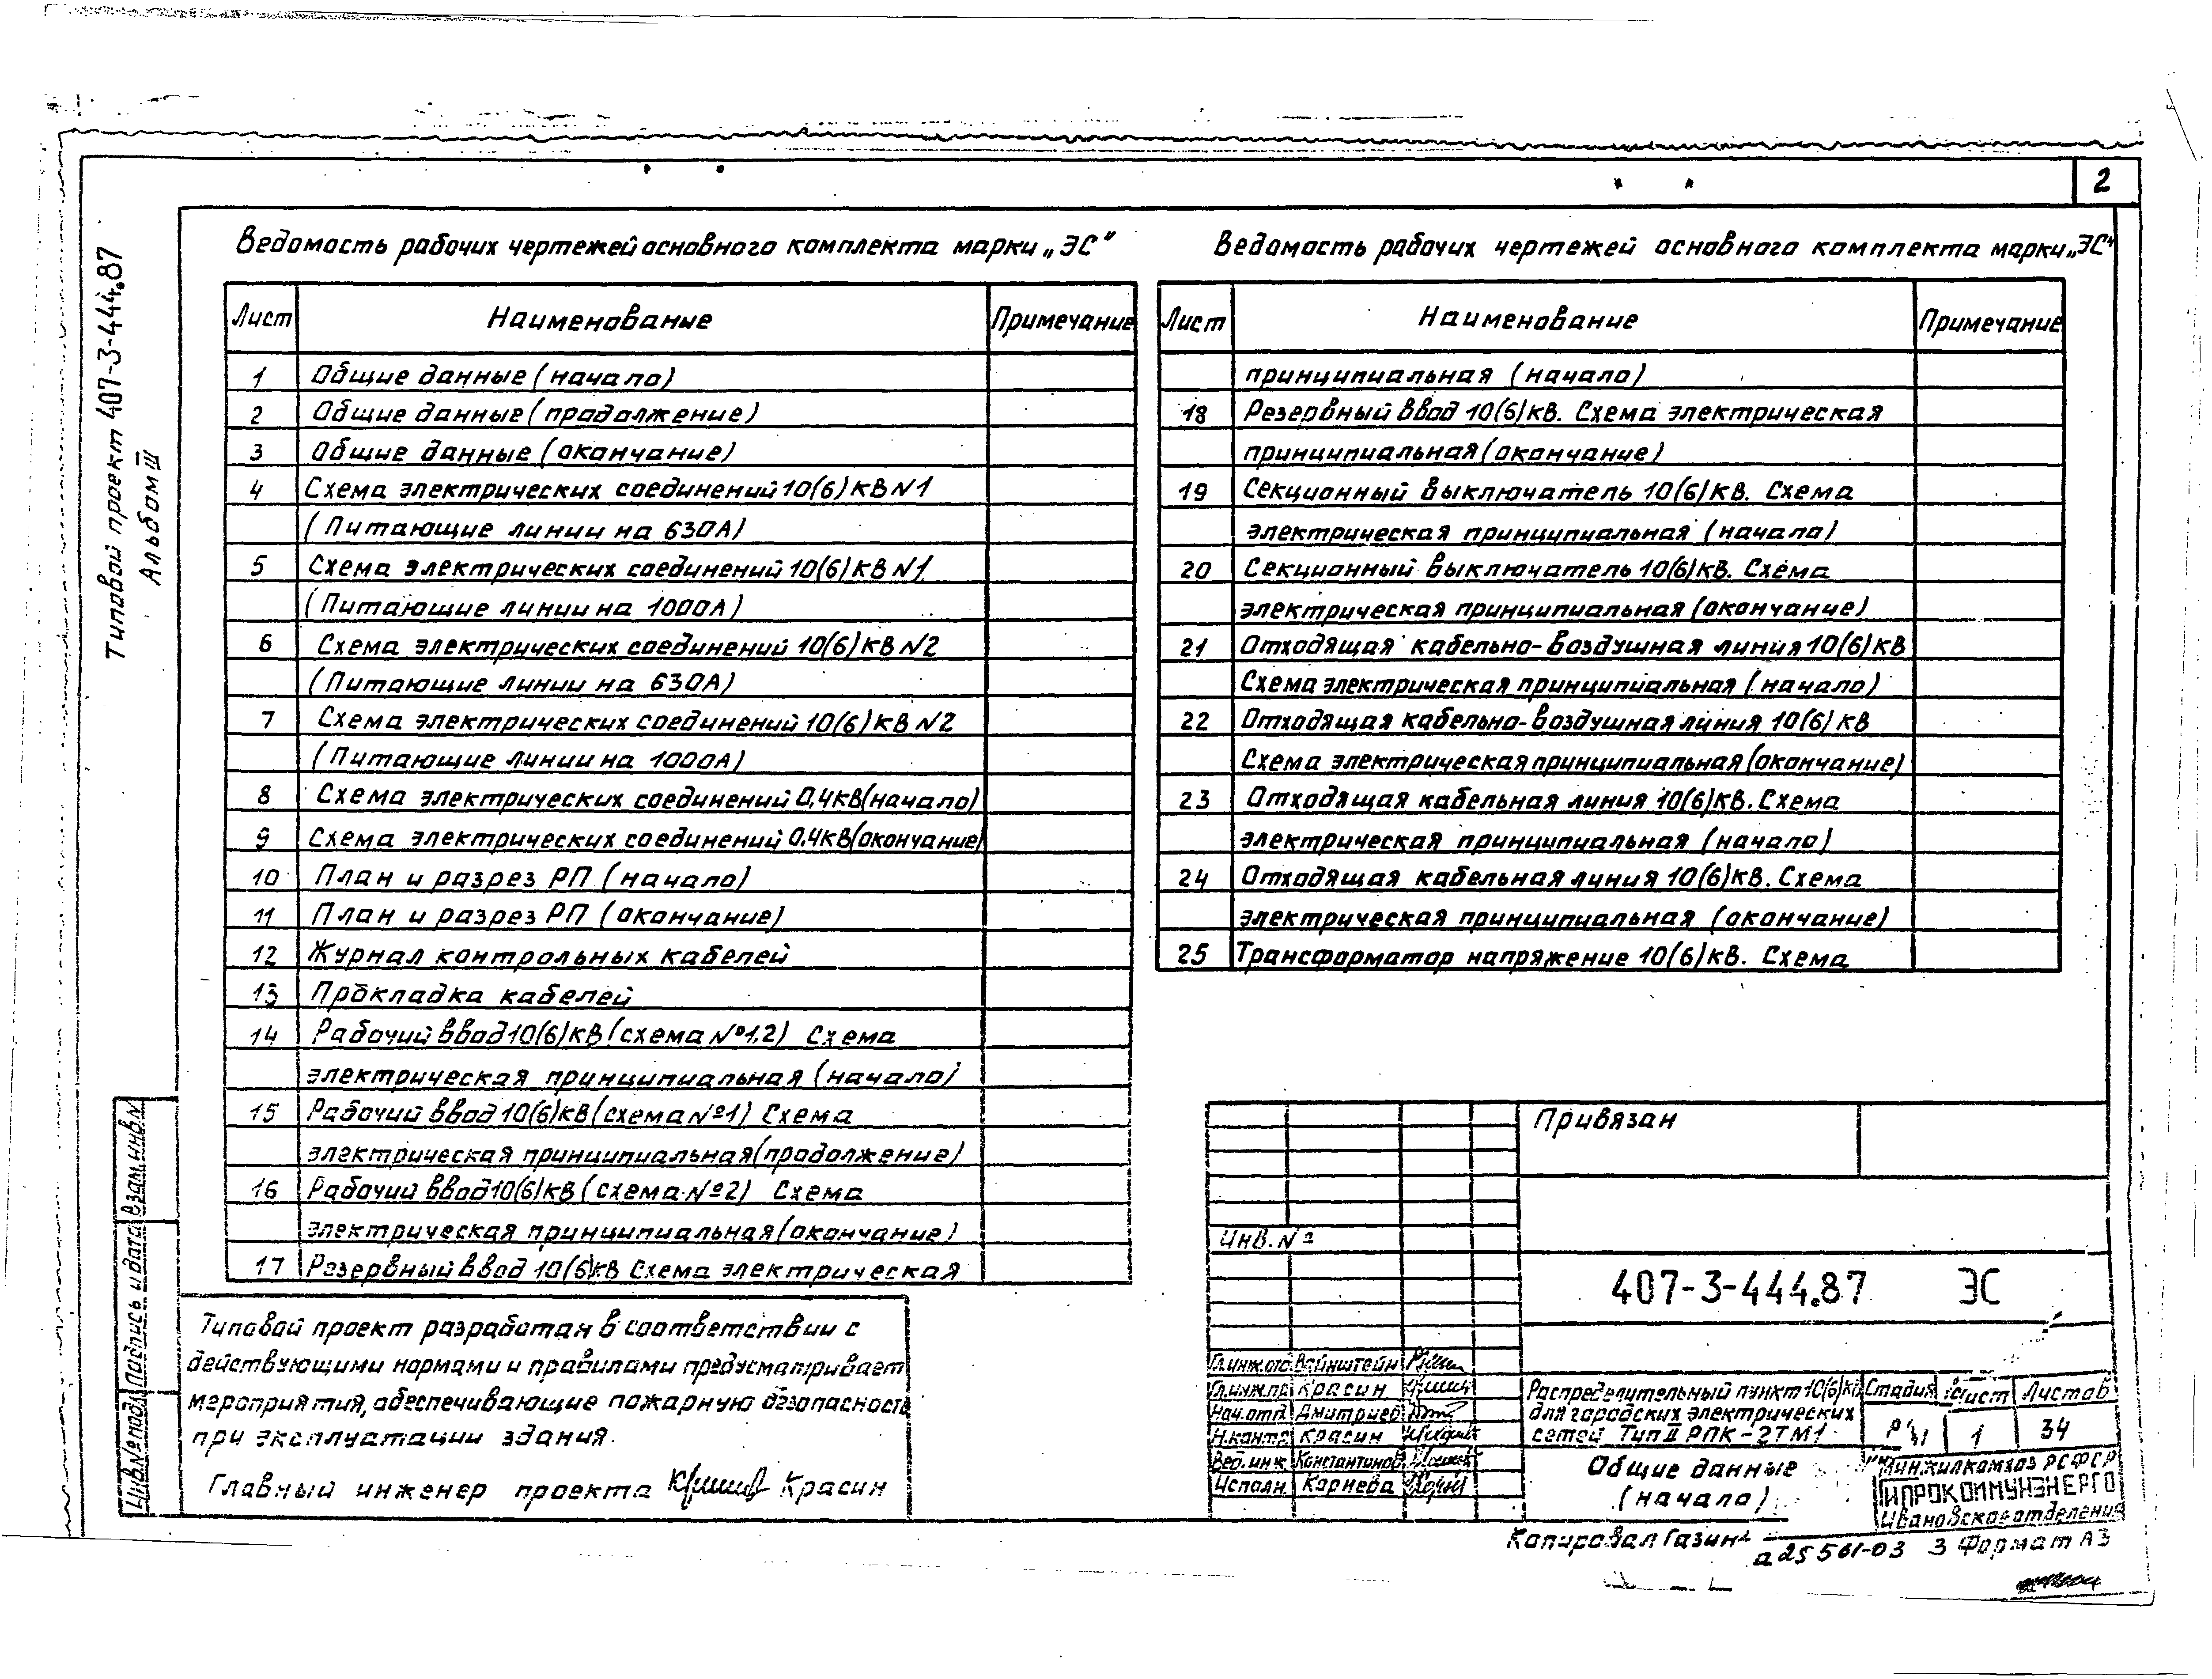 2
Типовой проект 407-3-444.87
Альбом III
Ведомость рабочих чертежей основного комплекта марки „ЭС"
Лист Наименование Примечание
1 Общие данные (начало)
2 Общие данные (продолжение)
3 Общие данные (окончание)
4 Схема электрических соединений 10(6) кВ N1
(Питающие линии на 630А)
5 Схема электрических соединений 10(6) кВ N1
(Питающие линии на 1000А)
6 Схема электрических соединений 10(6) кВ N2
(Питающие линии на 630А)
7 Схема электрических соединений 10(6) кВ N2
(Питающие линии на 1000А)
8 Схема электрических соединений 0,4кВ (начало)
9 Схема электрических соединений 0,4кВ (окончание)
10 План и разрез РП (начало)
11 План и разрез РП (окончание)
12 Журнал контрольных кабелей
13 Прокладка кабелей
14 Рабочий ввод 10(6) кВ (схема №1,2) Схема
электрическая принципиальная (начало)
15 Рабочий ввод 10(6) кВ (схема №1) Схема
электрическая принципиальная (продолжение)
16 Рабочий ввод 10(6) кВ (схема №2) Схема
электрическая принципиальная (окончание)
17 Резервный ввод 10(6) кВ Схема электрическая
Ведомость рабочих чертежей основного комплекта марки „ЭС"
Лист Наименование Примечание
принципиальная (начало)
18 Резервный ввод 10(6) кВ. Схема электрическая
принципиальная (окончание)
19 Секционный выключатель 10(6) кВ. Схема
электрическая принципиальная (начало)
20 Секционный выключатель 10(6) кВ. Схема
электрическая принципиальная (окончание)
21 Отходящая кабельно-воздушная линия 10(6) кВ
Схема электрическая принципиальная (начало)
22 Отходящая кабельно-воздушная линия 10(6) кВ
Схема электрическая принципиальная (окончание)
23 Отходящая кабельная линия 10(6) кВ. Схема
электрическая принципиальная (начало)
24 Отходящая кабельная линия 10(6) кВ. Схема
электрическая принципиальная (окончание)
25 Трансформатор напряжение 10(6) кВ. Схема
Типовой проект разработан в соответствии с
действующими нормами и правилами предусматривает
мероприятия, обеспечивающие пожарную безопасность
при эксплуатации здания.
Главный инженер проекта Красин
Инв.№ подл. Подпись и дата Взам.инв.N
Привязан
Инв. №
407-3-444.87 ЭС
Гл.инж.отд Вайнштейн
Гл.инж.пр. Красин
Нач.отд. Дмитриев
Н.контр. Красин
Вед.инж. Константинов
Исполн. Корнева
Распределительный пункт 10(6) кВ
для городских электрических
сетей Тип II РПК-2ТМ1
Стадия Лист Листов
1 34
Общие данные
(начало)
Минжилкомхоз РСФСР
ГИПРОКОММУНЭНЕРГО
Ивановское отделение
Копировал Газина
а 25561-03 3 Формат А3